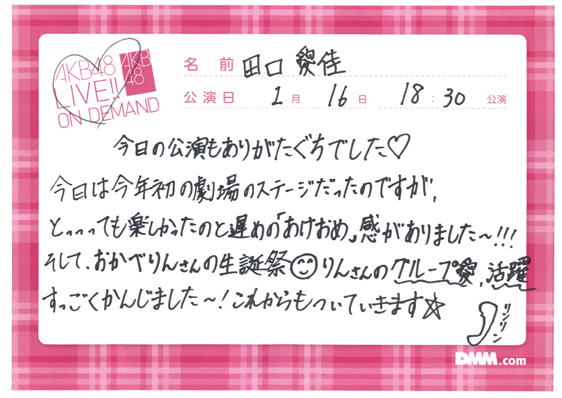 AKB48
LIVE!!
ON DEMAND
AKB
48
名前 田口愛佳
公演日 1月 16日 18:30 公演
今日の公演もありがたぐちでした♡
今日は今年初の劇場のステージだったのですが、
とっっっても楽しかったのと遅めの「あけおめ」感がありました〜!!!
そして、おかべりんさんの生誕祭☺りんさんのグループ愛、活躍
すっごくかんじました〜!これからもついていきます☆
リンリン
DMM.com